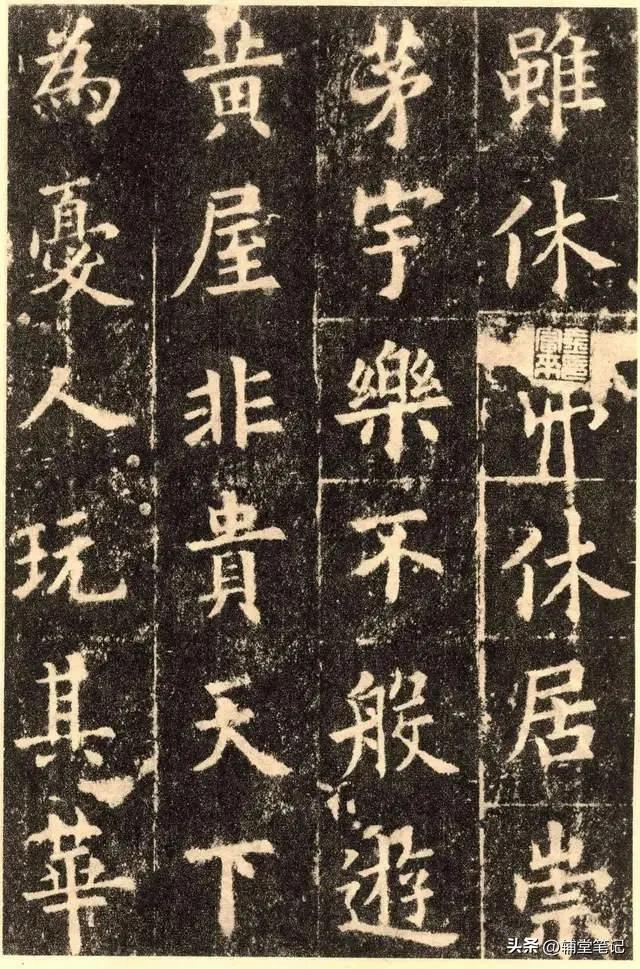 雖休休居崇
茅宇樂不般遊
黄屋非貴天下
為憂人玩其華
头条 @辅堂笔记